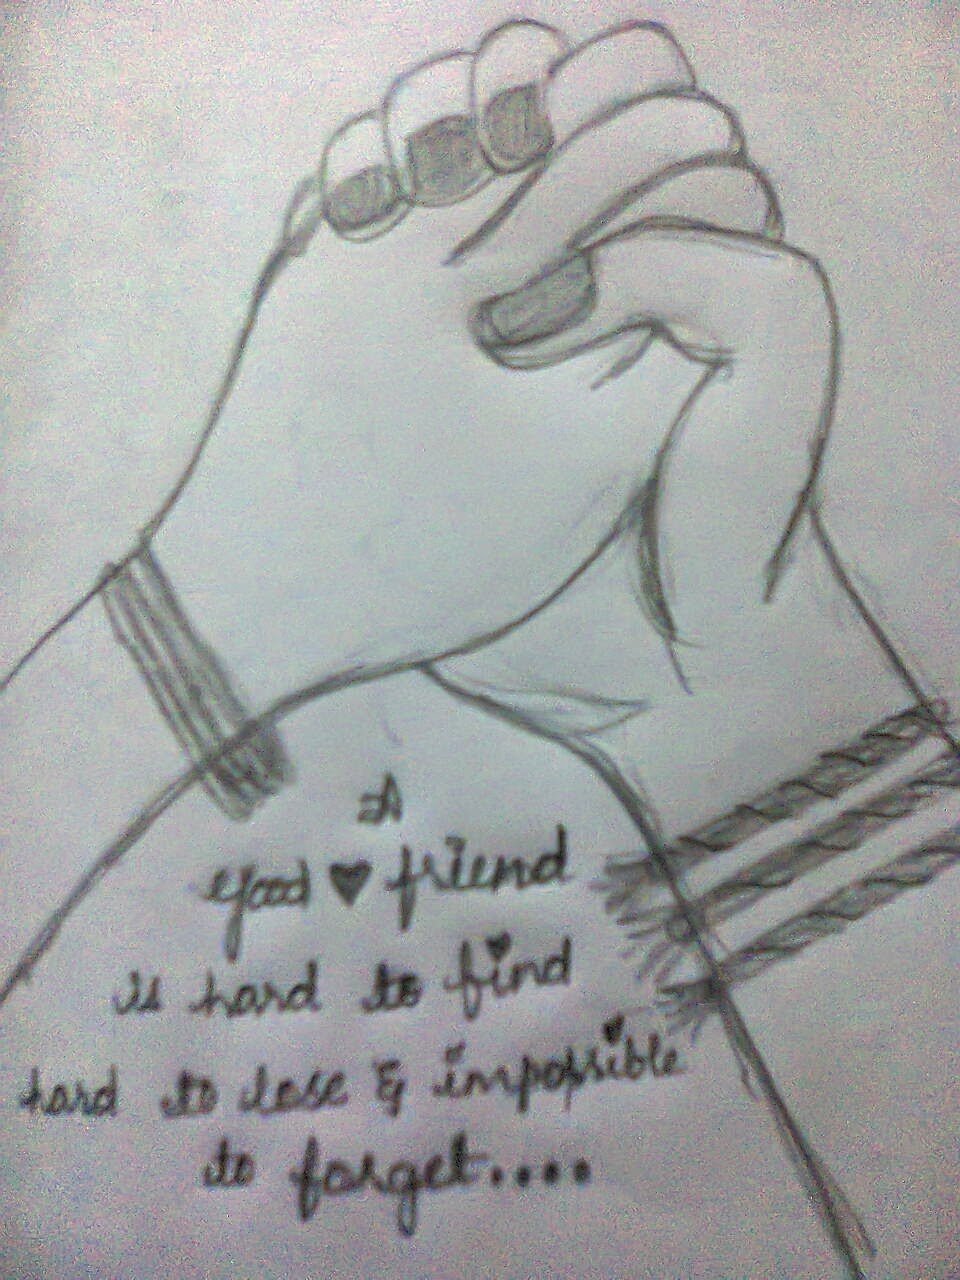 A
good ♥ friend
is hard to find
hard to lose & impossible
to forget....